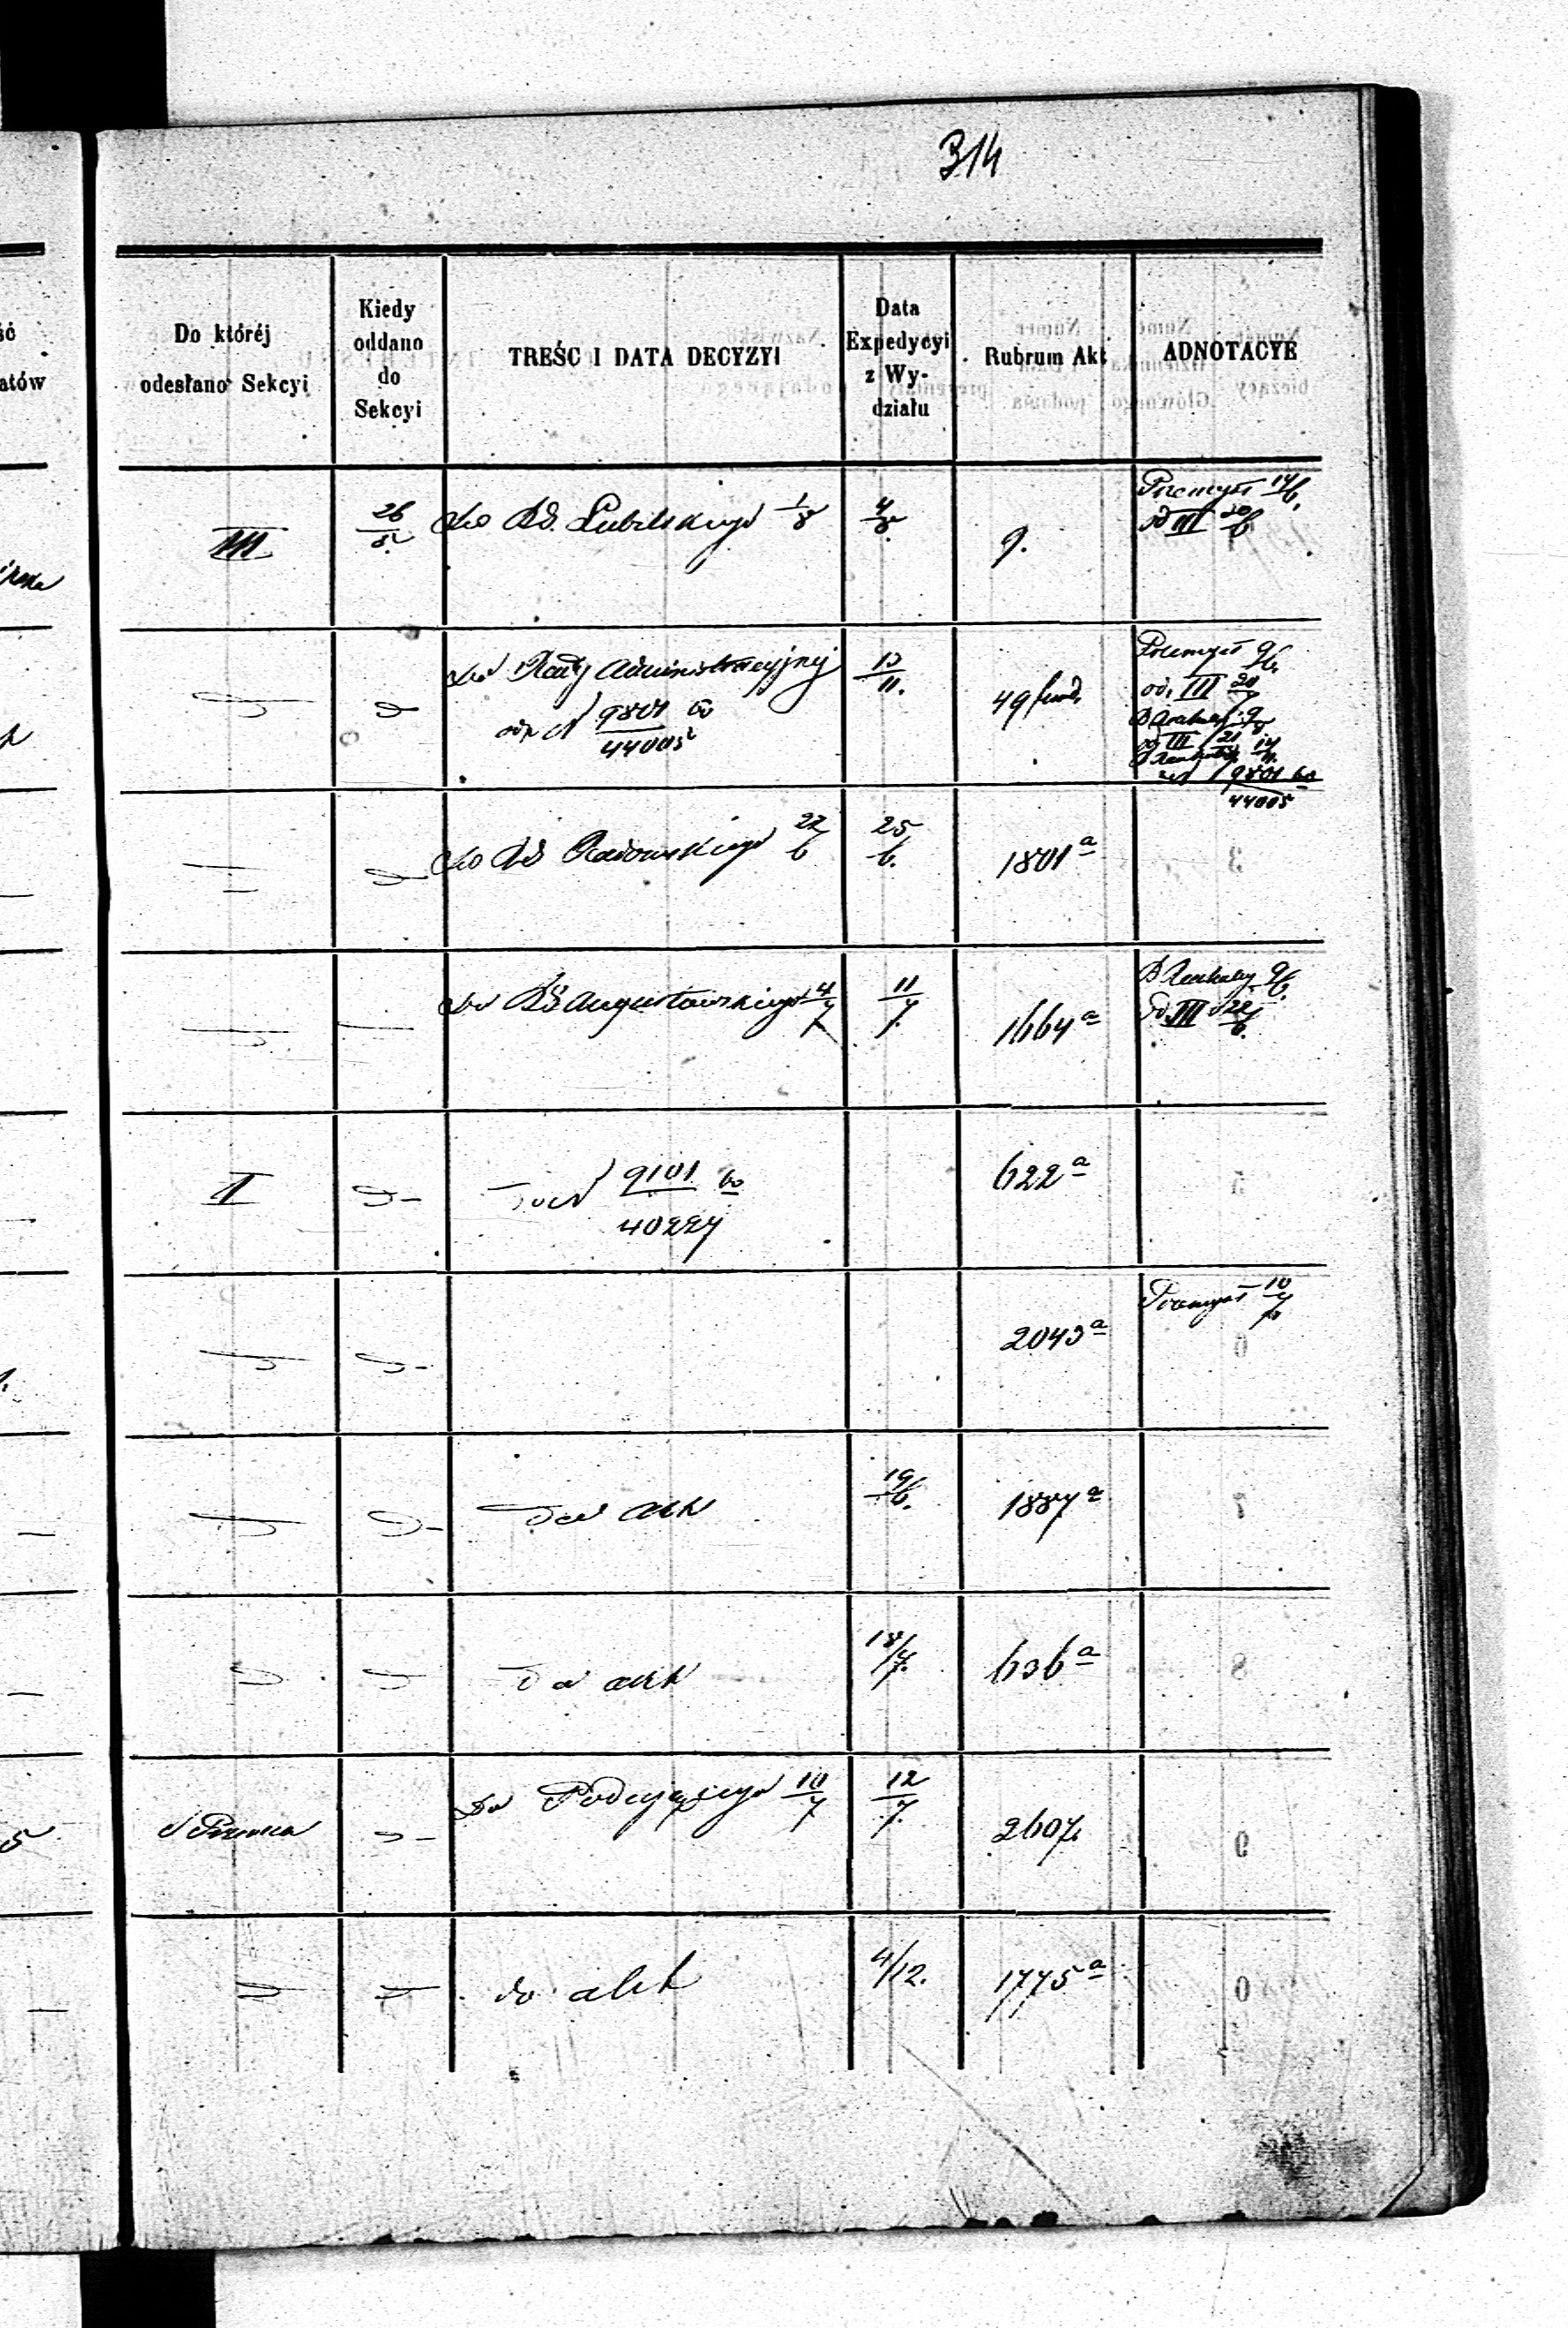 314
Do któréj
odesłano Sekcyi
Kiedy
oddano
do
Sekcyi
TREŚC I DATA DECYZYI
Data
Expedycyi
z Wy-
działu
Rubrum Akt
ADNOTACYE
III
26/5
Do RG. Lubelskiego 1/8
4/8.
9.
Przemysł 14/6.
od III 20/6
Do Rady Administracyjnej
9801 60
44005
13/11.
49 fund.
Przemysł 9/6.
od. III 20/7
9801 60
44005
Do RG Radomskiego 22/6
25/6.
1801 a
Do RG Augustowskiego 4/7
11/7.
1664 a
9/6.
od. III 22/6.
I
do N 9101 60
40227
622 a
2043 a
Przemysł 10/7
do akt
19/6.
1887 a
do akt
18/7.
636 a
Prawna
Do 10/7
12/7.
2607
do akt
4/12.
1775 a